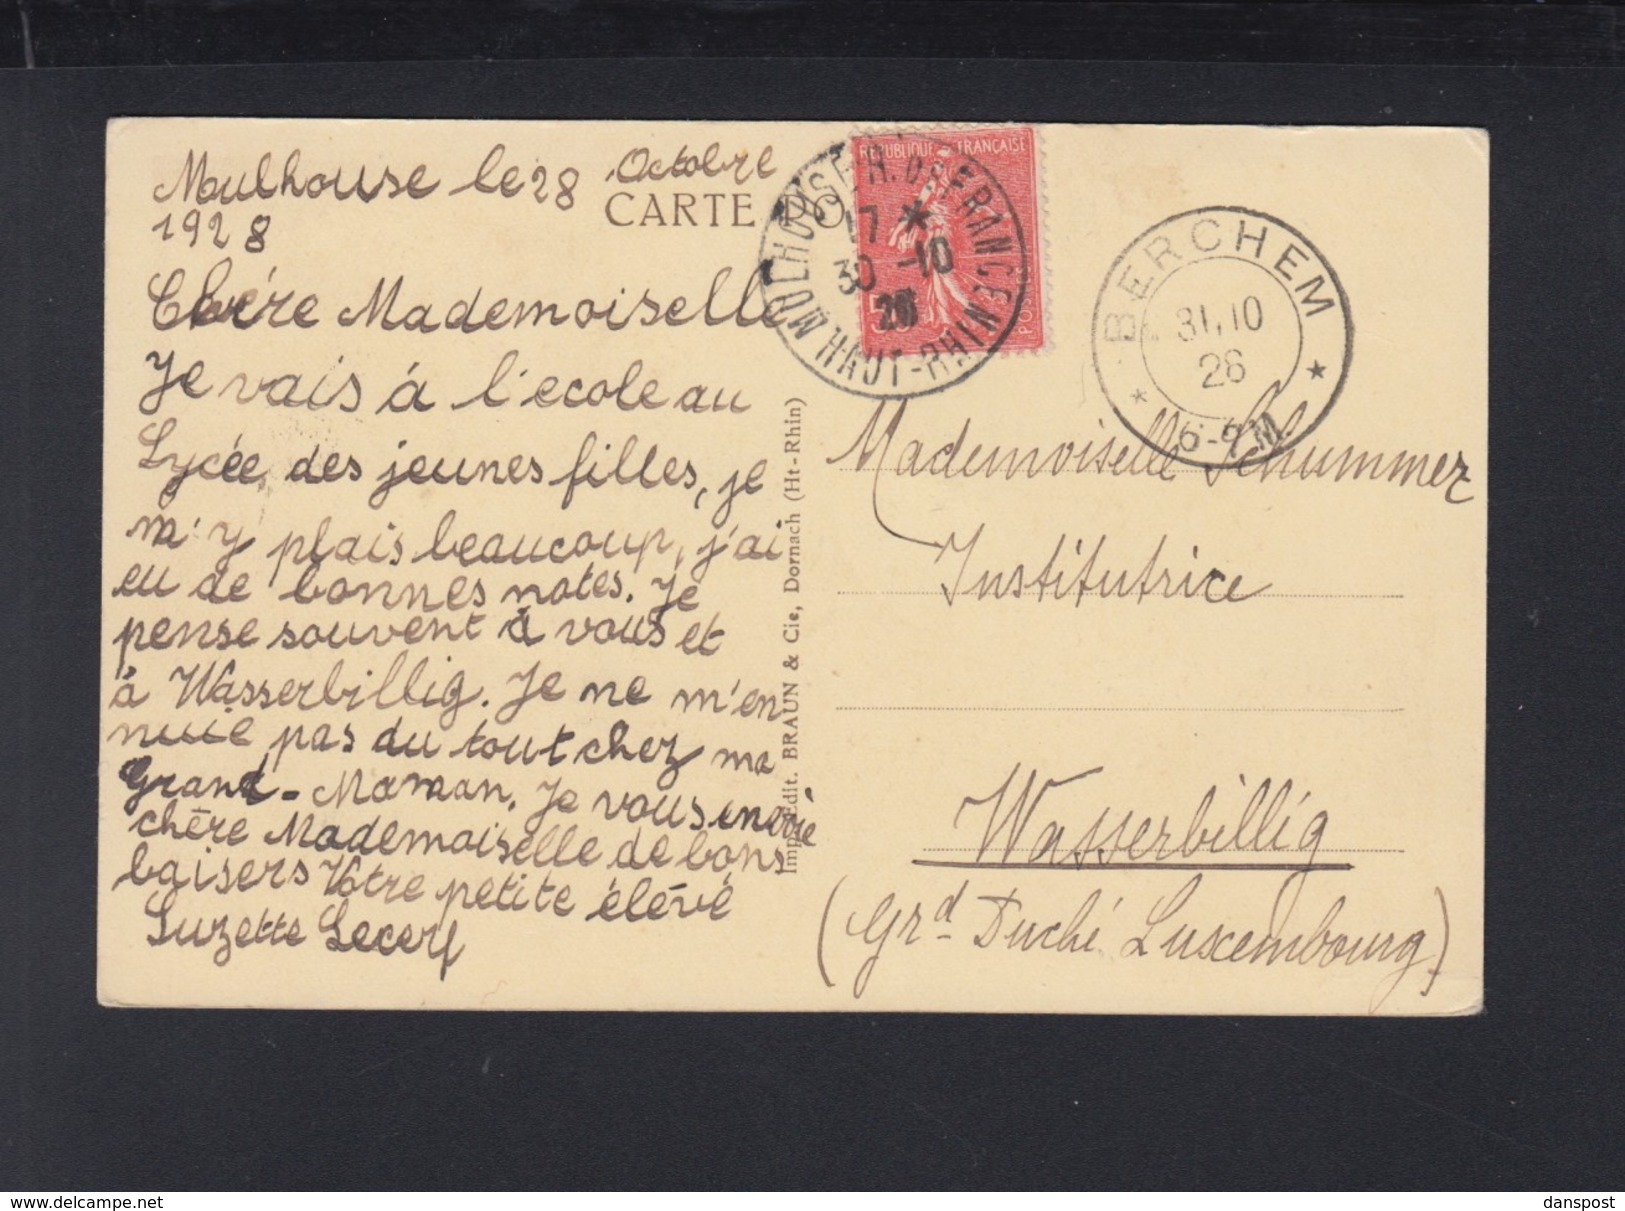 Mulhouse le 28 Octobre
1928
CARTE PO
Chére Mademoiselle
Je vais à l'ecole au
Lycée des jeunes filles, je
m'y plais beaucoup, j'ai
eu de bonnes notes. Je
pense souvent à vous et
à Wasserbillig. Je ne m'en
nuie pas du tout chez ma
Grand-Maman. Je vous envoie
chère Mademoiselle de bons
baisers Votre petite élévé
Suzette Lecerf
Imp. Edit. BRAUN & Cie, Dornach (Ht-Rhin)
REPUBLIQUE FRANÇAISE
POSTES
MULHOUSE R. DE FRANCE
17 *
30 -10
26
HAUT-RHIN
BERCHEM
31.10
26
6-9 M.
Mademoiselle Schummer
Institutrice
Wasserbillig
(Grd Duché Luxembourg)
https://www.delcampe.net
danspost